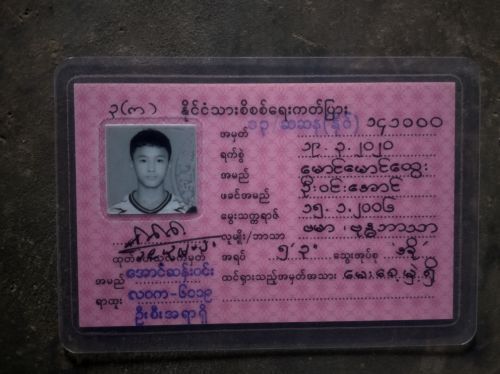 ၃(က) နိုင်ငံသားစိစစ်ရေးကတ်ပြား
အမှတ် ၁၃/ဆဆန(နိုင်) ၁၄၁၀၀၀
ရက်စွဲ ၁၉.၃.၂၀၂၀
အမည် မောင်မောင်ထွေး
ဖခင်အမည် ဦးဝင်းအောင်
မွေးသက္ကရာဇ် ၁၅.၁.၂၀၀၆
လူမျိုး/ဘာသာ ဗမာ ၊ ဗုဒ္ဓဘာသာ
အရပ် ၅'၃" သွေးအုပ်စု အို
ထင်ရှားသည့်အမှတ်အသား
အမည် အောင်ဆန်းဝင်း
ရာထူး လဝက-၆၀၁၉
ဦးစီးအရာရှိ